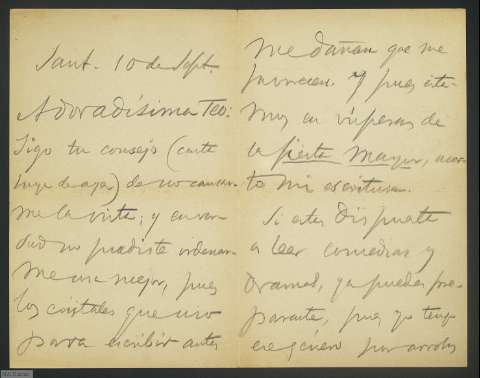 Sant. 10 de Sept.
Adoradísima Teo:
Sigo tu consejo (carte
luye de aya) de no cansar-
me la vista; y en ver-
dad no pudiste ordenar-
me cosa mejor, pues
los cristales que uso
para escribir antes
me dañan que me
favorecen. Y pues esta-
mos en vísperas de
la fiesta mayor, acor-
to mi escritura.
Si estás dispuesta
a leer comedias y
dramas, ya puedes pre-
pararte, pues yo tengo
ese género por arrobas